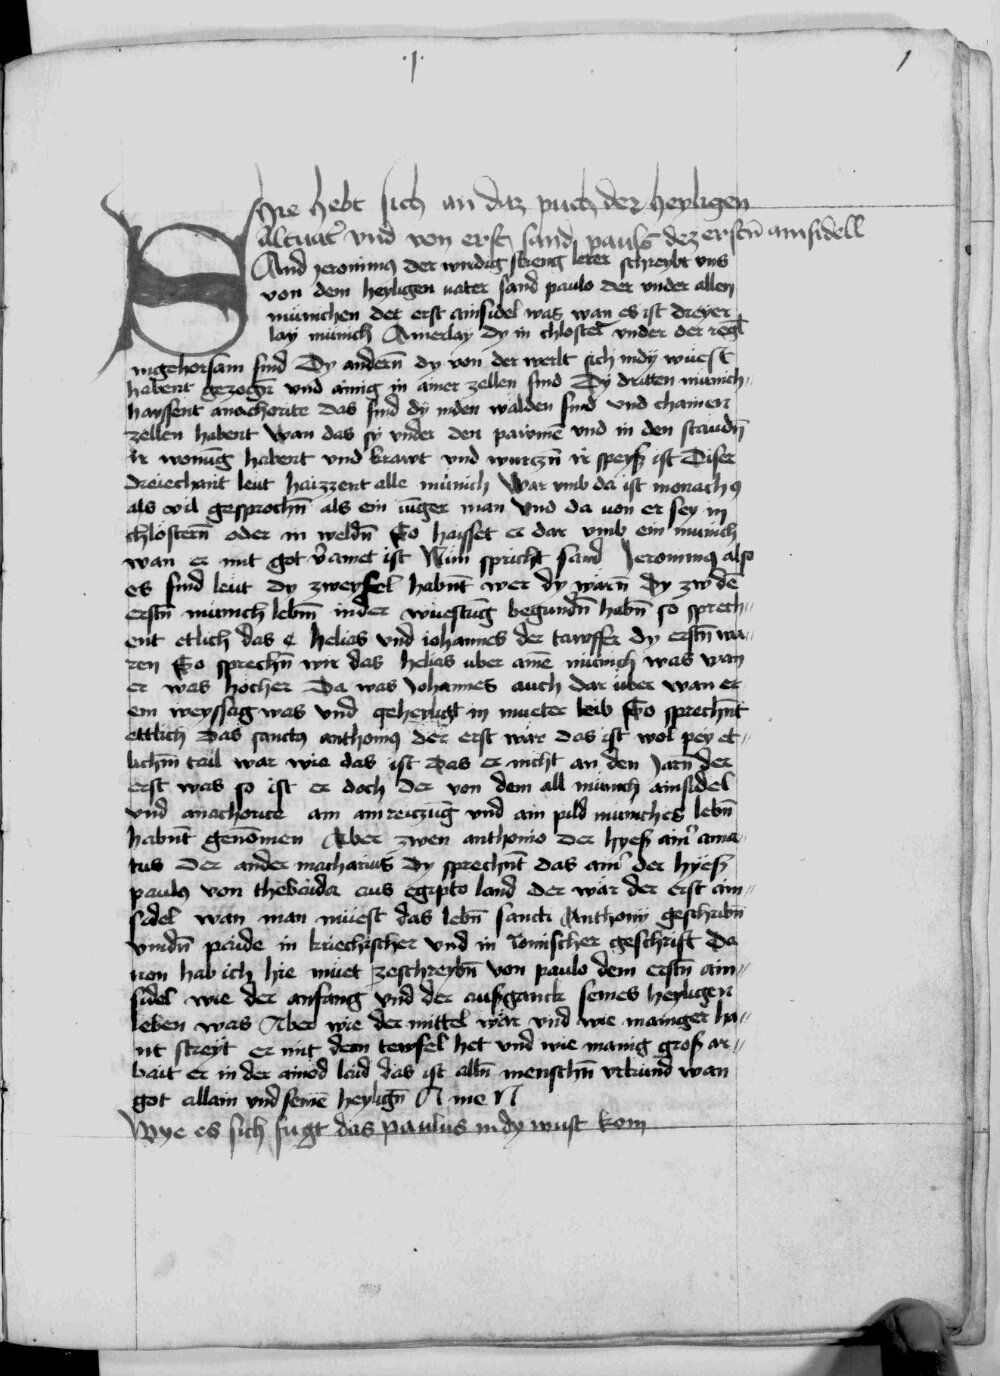 .1. 1
Hie hebt sich an daz puch der heyligen
altuat' vnd von erst sand pauls dez erstn̄ ainsidell
SAnd Jeronimus der wirdig streng lerer schreybt vns
von dem heyligen uater sand paulo der vnder allen
münichen der erst ainsidel was wan es ist dreyer
lay münich Ainerlay dy in chloster vnder der regl
in gehorsam sind Dy andern̄ dy von der werlt sich in dy wüest
habent gezogn̄ vnd ainig in ainer zellen sind Dy dritten münich
hayssent anachorite das sind dy in den wälden sind vnd chainen
zellen habent wan das sy vnder den pawmē vnd in den staudn̄
ir wonūg habent vnd krawt vnd wurczn̄ ir speyß ist Diser
dreiechant leut haizzent alle münich War vmb da ist monachus
als vil gesprochn̄ als ein ainiger man vnd da uon er sey in
chlöstern̄ oder in weldn̄ So haisset er dar vmb ein münich
wan er mit got v̄ainet ist Nun spricht sand Jeronimus also
es sind leut dy zweyfel habnt wer dy wärn̄ dy zw dē
erstn̄ münich lebm̄ in der wuestūg begundn̄ habn̄ so sprech〃
ent etlich das e helias vnd iohannes der tawffer dy erstn̄ wa〃
ren So sprechn̄ wir das helias uber ainē münich was wan
er was höcher Da was Johannes auch dar uber wan er
ein weyssag was vnd geheyligt in mueter leib So sprechnt
ettlich das sanctus anthonius der erst wär das ist wol pey et〃
lichm̄ tail war wie das ist das er nicht an den Jarn̄ der
erst was so ist er doch der von dem all münich ainsidel
vnd anachorite ain anreiczūg vnd ain pild münches lebn̄
habnt genōmen Aber zwen anthonio der hyeß ain' ama〃
tus der ander macharius dy sprechnt das ain' der hyeß
paulus von thebaida aus egipto land der war der erst ain〃
sidel wan man müest das lebn̄ sancti Anthonij geschribn̄
vindn̄ paide in kriechischer vnd in römischer geschrift Da
uon hab ich hie müet zeschreybn̄ von paulo dem erstn̄ ain〃
sidel wie der anfang vnd der außganck seines heyligen
leben was Aber wie der mittel wär vnd wie mainger ha〃
nt streyt er mit dem tewfel het vnd wie manig groß ar〃
bait er in der ainöd laid das ist alln̄ menschn̄ vrkund wan
got allain vnd seinē heylign̄ AmeN
Wye es sich fugt das paulus in dy wust kom